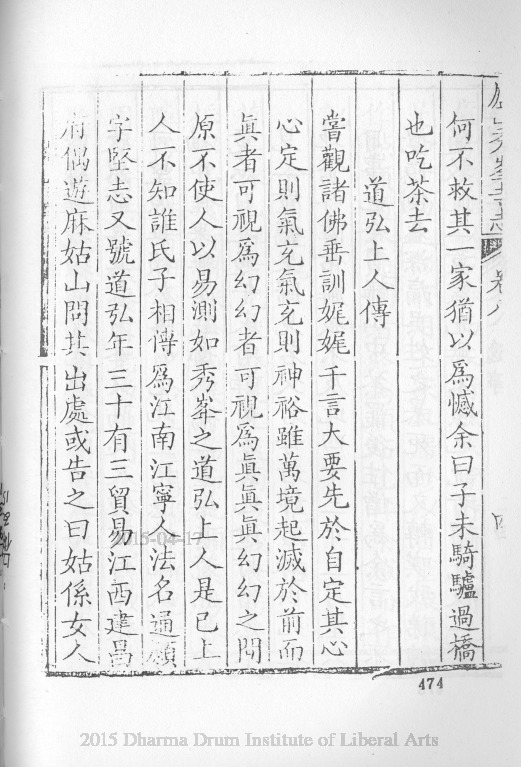 何不救其一家猶以為憾余曰子未騎驢過橋
也吃茶去
道弘上人傳
嘗觀諸佛垂訓娓娓千言大要先於自定其心
心定則氣充氣充則神裕雖萬境起滅於前而
眞者可視爲幻幻者可視爲眞眞眞幻幻之間
原不使人以易測如秀峯之道弘上人是已上
人不知誰氏子相傳爲江南江寧人法名通願
字堅志又號道弘年三十有三貿易江西建昌
府偶遊麻姑山問其出處或告之曰姑係女人
卷八
474
2015-04-17
2015 Dharma Drum Institute of Liberal Arts